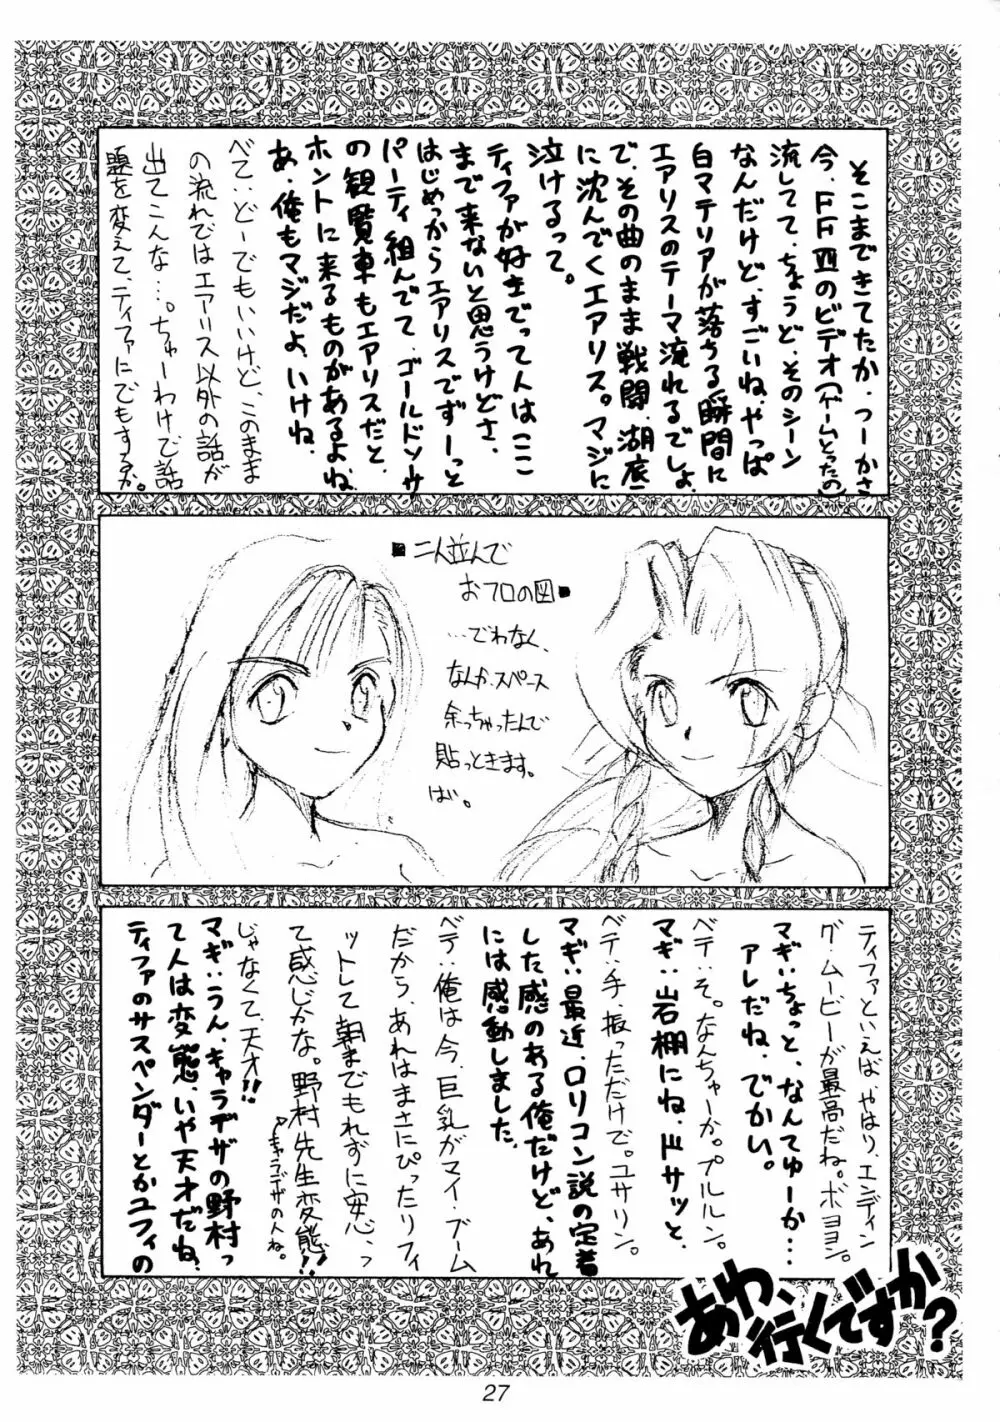 そこまできてたか。つーかさ
今、FFⅦのビデオ(ゲームとったの)
流してて、ちょうど、そのシーン
なんだけど、すごいね、やっぱ
白マテリアが落ちる瞬間に
エアリスのテーマ流れるでしょ
で、その曲のまま戦闘、湖底
に沈んでくエアリス。マジに
泣けるって。
ティファが好きでって人はここ
まで来ないと思うけどさ、
はじめっからエアリスでずーっと
パーティ組んでて、ゴールドソーサ
の観覧車もエアリスだと、
ホントに来るものがあるよね
あ、俺もマジだよ、いけね
べて:どーでもいいけど、このまま
の流れではエアリス以外の話が
出てこんな…。ちゅーわけで話
題を変えて、ティファにでもするか。
■二人並んで
おフロの図■
…でわなく、
なんか、スペース
余っちゃったんで
貼っときます。
ば。
ティファといえば、やはり、エンディン
グ・ムービーが最高だね。ボヨヨン。
マギ:ちょっと、なんてゅーか…
アレだね、でかい。
ベテ:そ。なんちゃーか。プルルン。
マギ:岩棚にね、ドサッと
ベテ:手、振っただけで。ユサリン。
マギ:最近、ロリコン説の定着
した感のある俺だけど、あれ
には感動しました。
ベテ:俺は今、巨乳がマイ・ブーム
だから、あれはまさにぴったりフィ
ットして朝までもれずに安心、っ
て感じかな。野村先生変態!!
キャラデザの人ね。
じゃなくて、天才!!
マギ:うん、キャラデザの野村っ
て人は変態、いや天才だね、
ティファのサスペンダーとかユフィの
あわ、行くですか?
27